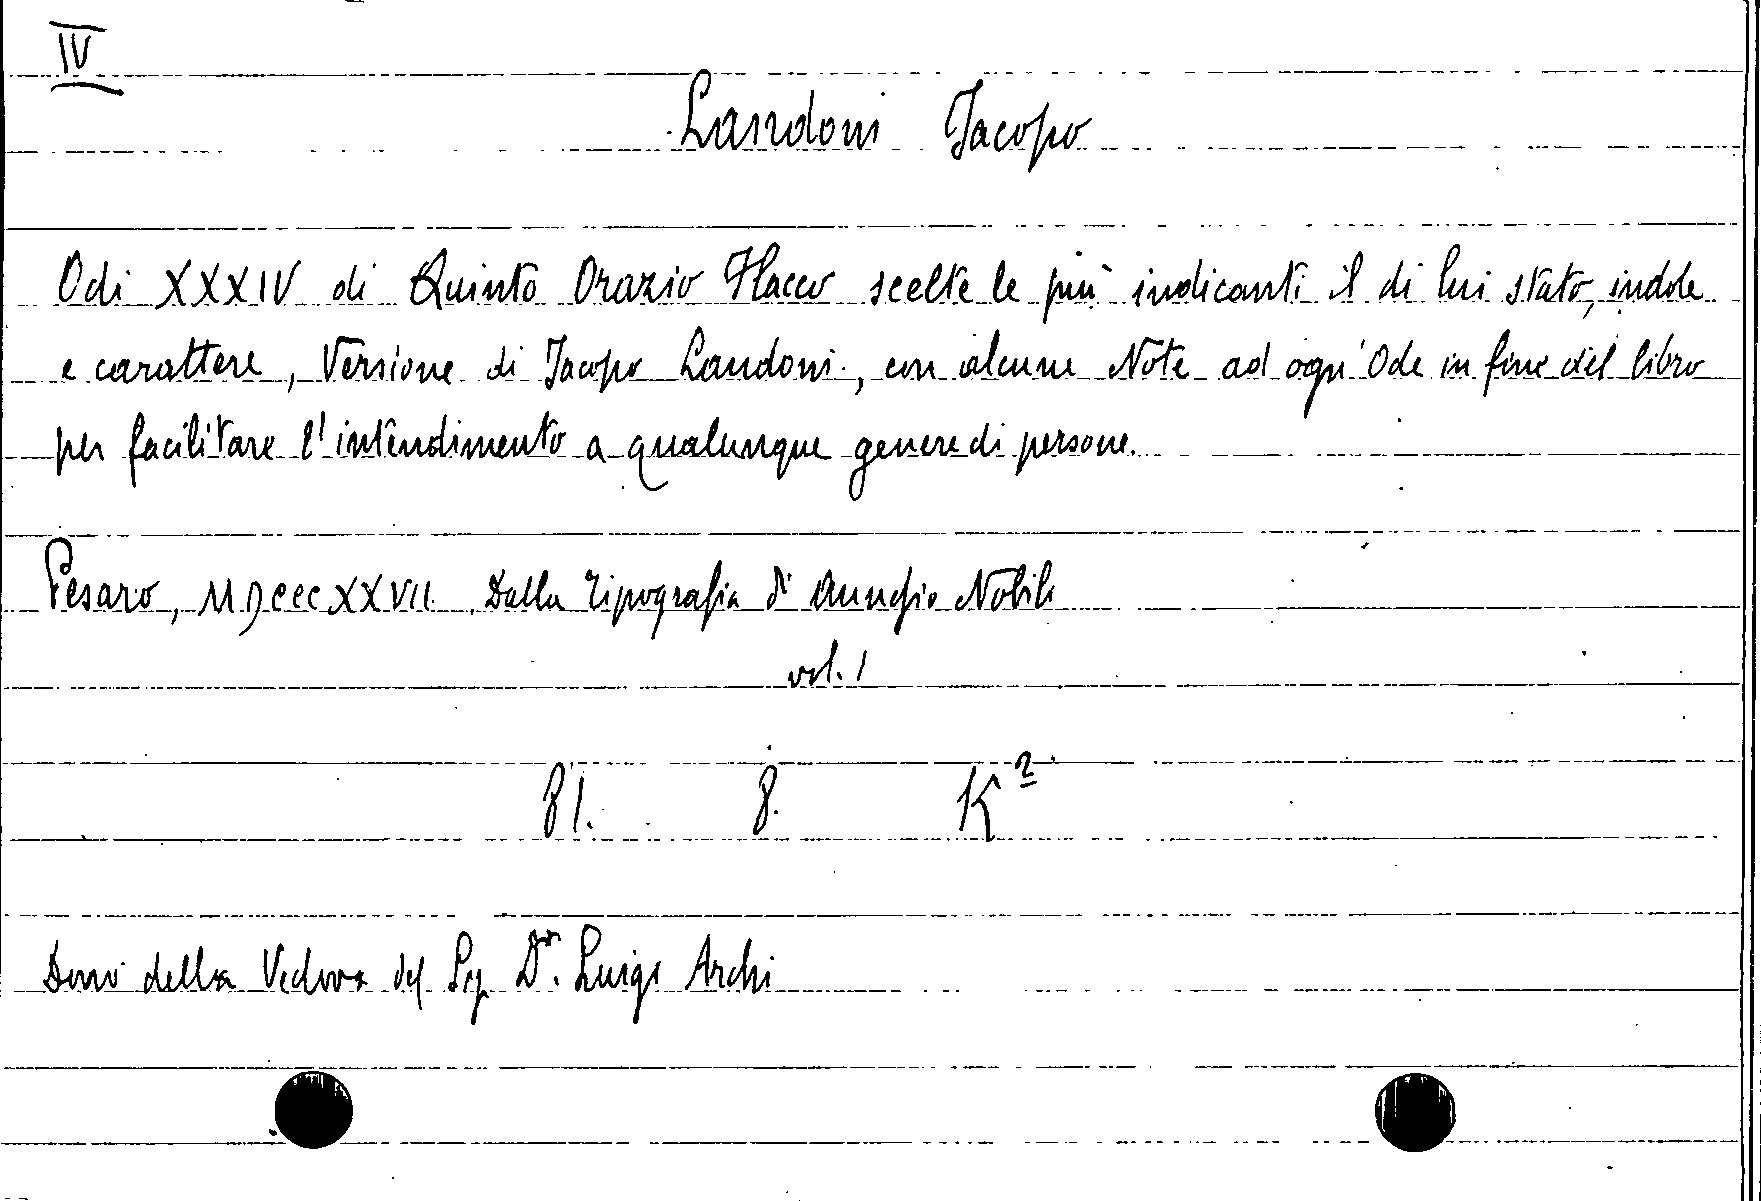 IV
Landoni Jacopo
Odi XXXIV di Quinto Orazio Flacco scelte le più indicanti il di lui stato, indole
e carattere, Versione di Jacopo Landoni, con alcune Note ad ogn' Ode in fine del libro
per facilitare l'intendimento a qualunque genere di persone.
Pesaro, MDCCCXXVII. Dalla Tipografia di Annesio Nobili
vol. 1
81. 8. K2
Dono della Vedova del Sig. Dr. Luigi Archi